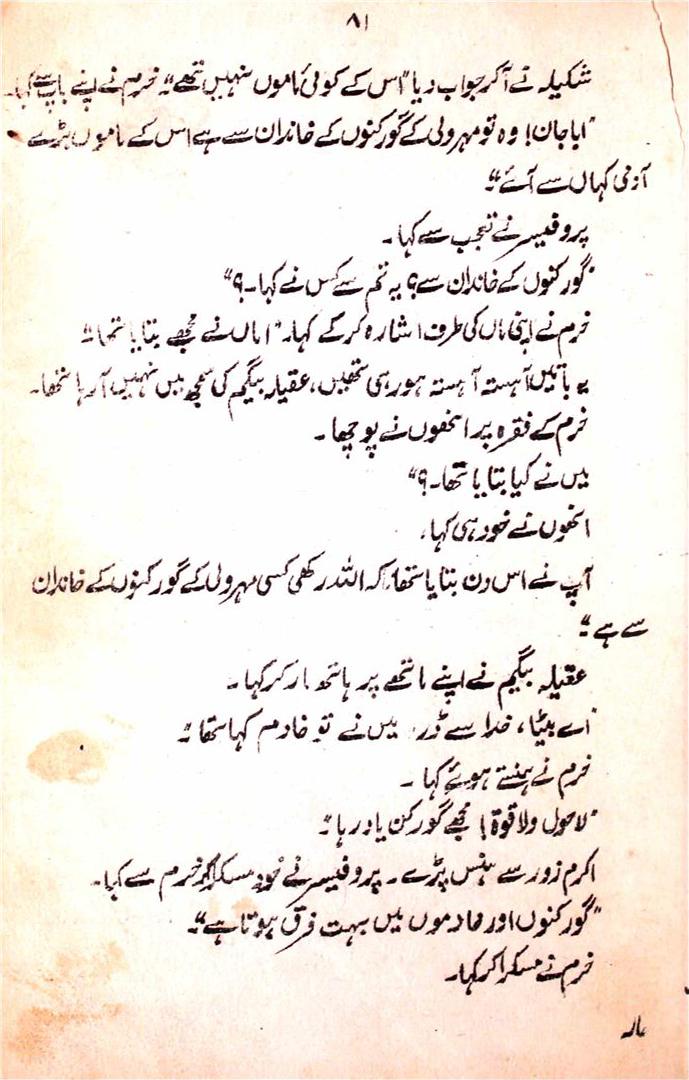 ۸۱
شکیلہ نے آکر جواب دیا "اس کے کوئی ماموں نہیں تھے" خرم نے اپنے باپ سے کہا۔
"ابا جان! وہ تو مہرولی کے گورکنوں کے خاندان سے ہے اس کے ماموں بڑے
آدمی کہاں سے آئے"۔
پروفیسر نے تعجب سے کہا۔
"گورکنوں کے خاندان سے؟ یہ تم سے کس نے کہا۔؟"
خرم نے اپنی ماں کی طرف اشارہ کر کے کہا۔ "اماں نے مجھے بتایا تھا"
یہ باتیں آہستہ آہستہ ہو رہی تھیں، عقیلہ بیگم کی سمجھ میں نہیں آرہا تھا۔
خرم کے فقرہ پر انھوں نے پوچھا۔
میں نے کیا بتایا تھا۔؟"
انھوں نے خود ہی کہا،
آپ نے اس دن بتایا تھا، کہ اللہ رکھی کسی مہرولی کے گورکنوں کے خاندان
سے ہے"۔
عقیلہ بیگم نے اپنے ماتھے پر ہاتھ مار کر کہا۔
"اے بیٹا، خدا سے ڈر، میں نے تو خادم کہا تھا"۔
خرم نے ہنستے ہوئے کہا۔
"لاحول ولا قوۃ! مجھے گورکن یاد رہا"۔
اکرم زور سے ہنس پڑے۔ پروفیسر نے خود مسکرا کر خرم سے کہا۔
"گورکنوں اور خادموں میں بہت فرق ہوتا ہے"۔
خرم نے مسکرا کر کہا۔